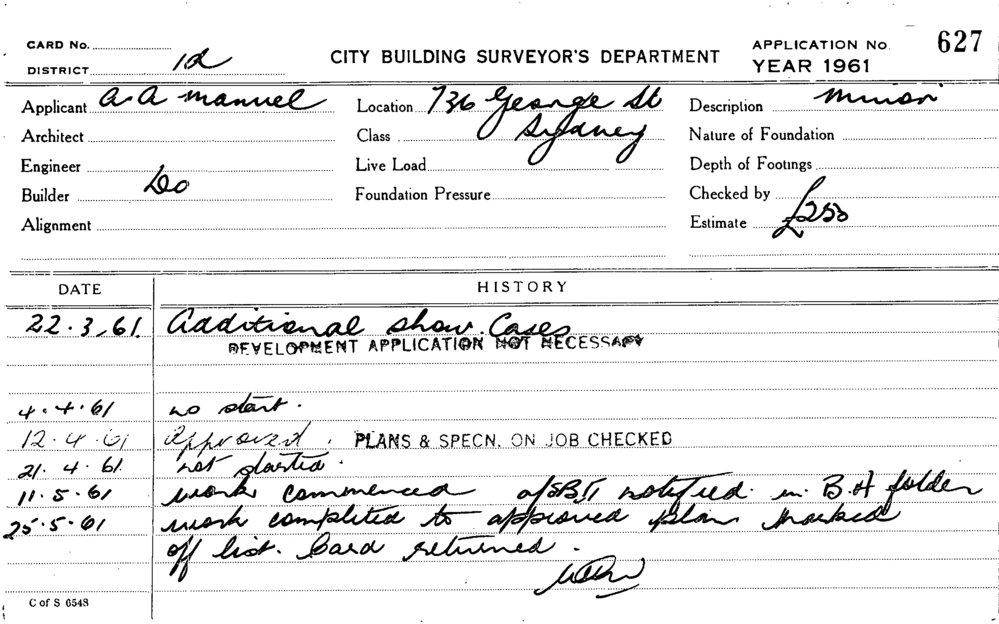 CARD No.
DISTRICT 1d
CITY BUILDING SURVEYOR'S DEPARTMENT
APPLICATION No. 627
YEAR 1961
Applicant A. A Manuel
Location 736 George St Sydney
Description Minor
Architect
Class
Nature of Foundation
Engineer
Live Load
Depth of Footings
Builder Do
Foundation Pressure
Checked by
Alignment
Estimate £250
DATE HISTORY
22.3.61. Additional show Cases
DEVELOPMENT APPLICATION NOT NECESSARY
4.4.61 no start.
12.4.61 Approved. PLANS & SPECN. ON JOB CHECKED
21.4.61. not started.
11.5.61 work commenced notified in B.H folder
25.5.61 work completed to approved plan marked
off list. Card returned.
C of S 6548